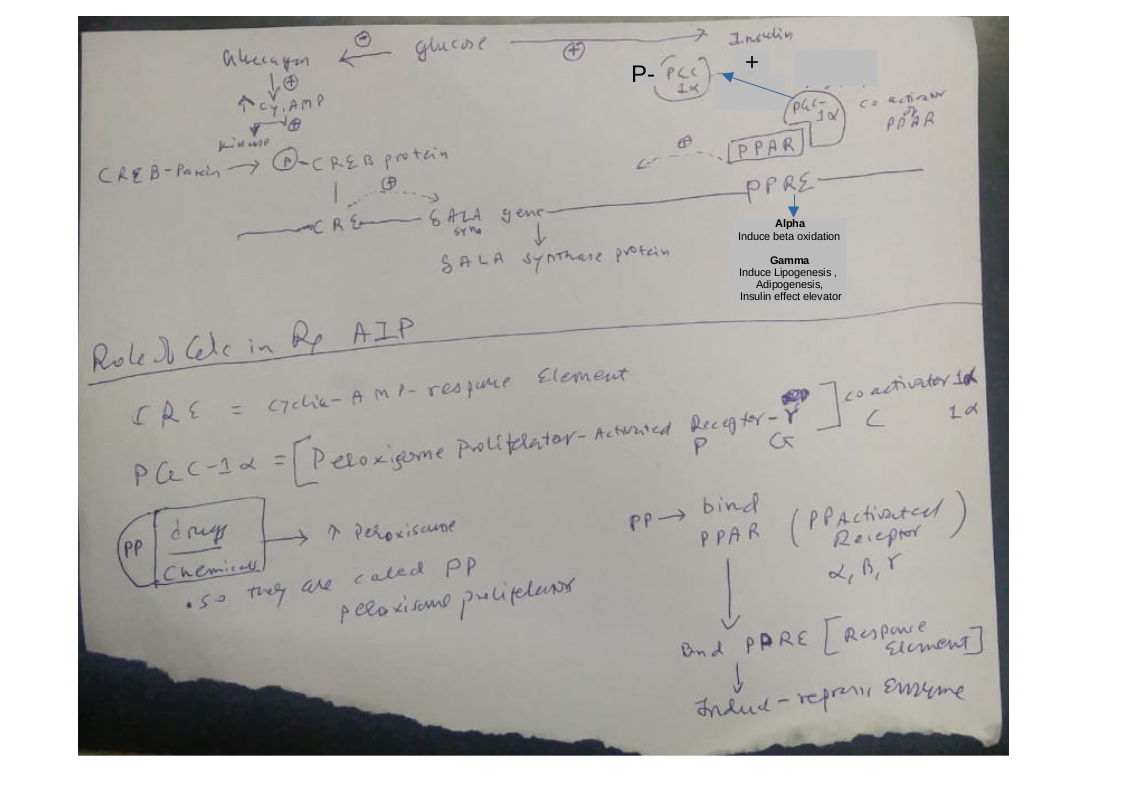 Glucagon ⊖ glucose ⊕ Insulin
⊕
↑ Cy. AMP
⊕
kinase
CREB-Protein → Ⓟ-CREB protein
⊕
CRE δALA gene PPRE
syn.
δALA synthase protein
P- PGC
1α
+
PGC-
1α
co activator
of
PPAR
⊕ PPAR
Alpha
Induce beta oxidation
Gamma
Induce Lipogenesis ,
Adipogenesis,
Insulin effect elevator
Role of Glc in Rx AIP
CRE = Cyclic-AMP-response Element
PGC-1α = [Peroxisome Proliferator-Activated Receptor-γ] coactivator 1α
P G C 1α
PP drugs
chemicals
→ ↑ Peroxisome
. so they are called PP
peroxisome proliferators
PP → bind
PPAR
(PPActivated
Receptor)
α, β, γ
Bind PPRE [Response
Element]
Induce-repress enzyme